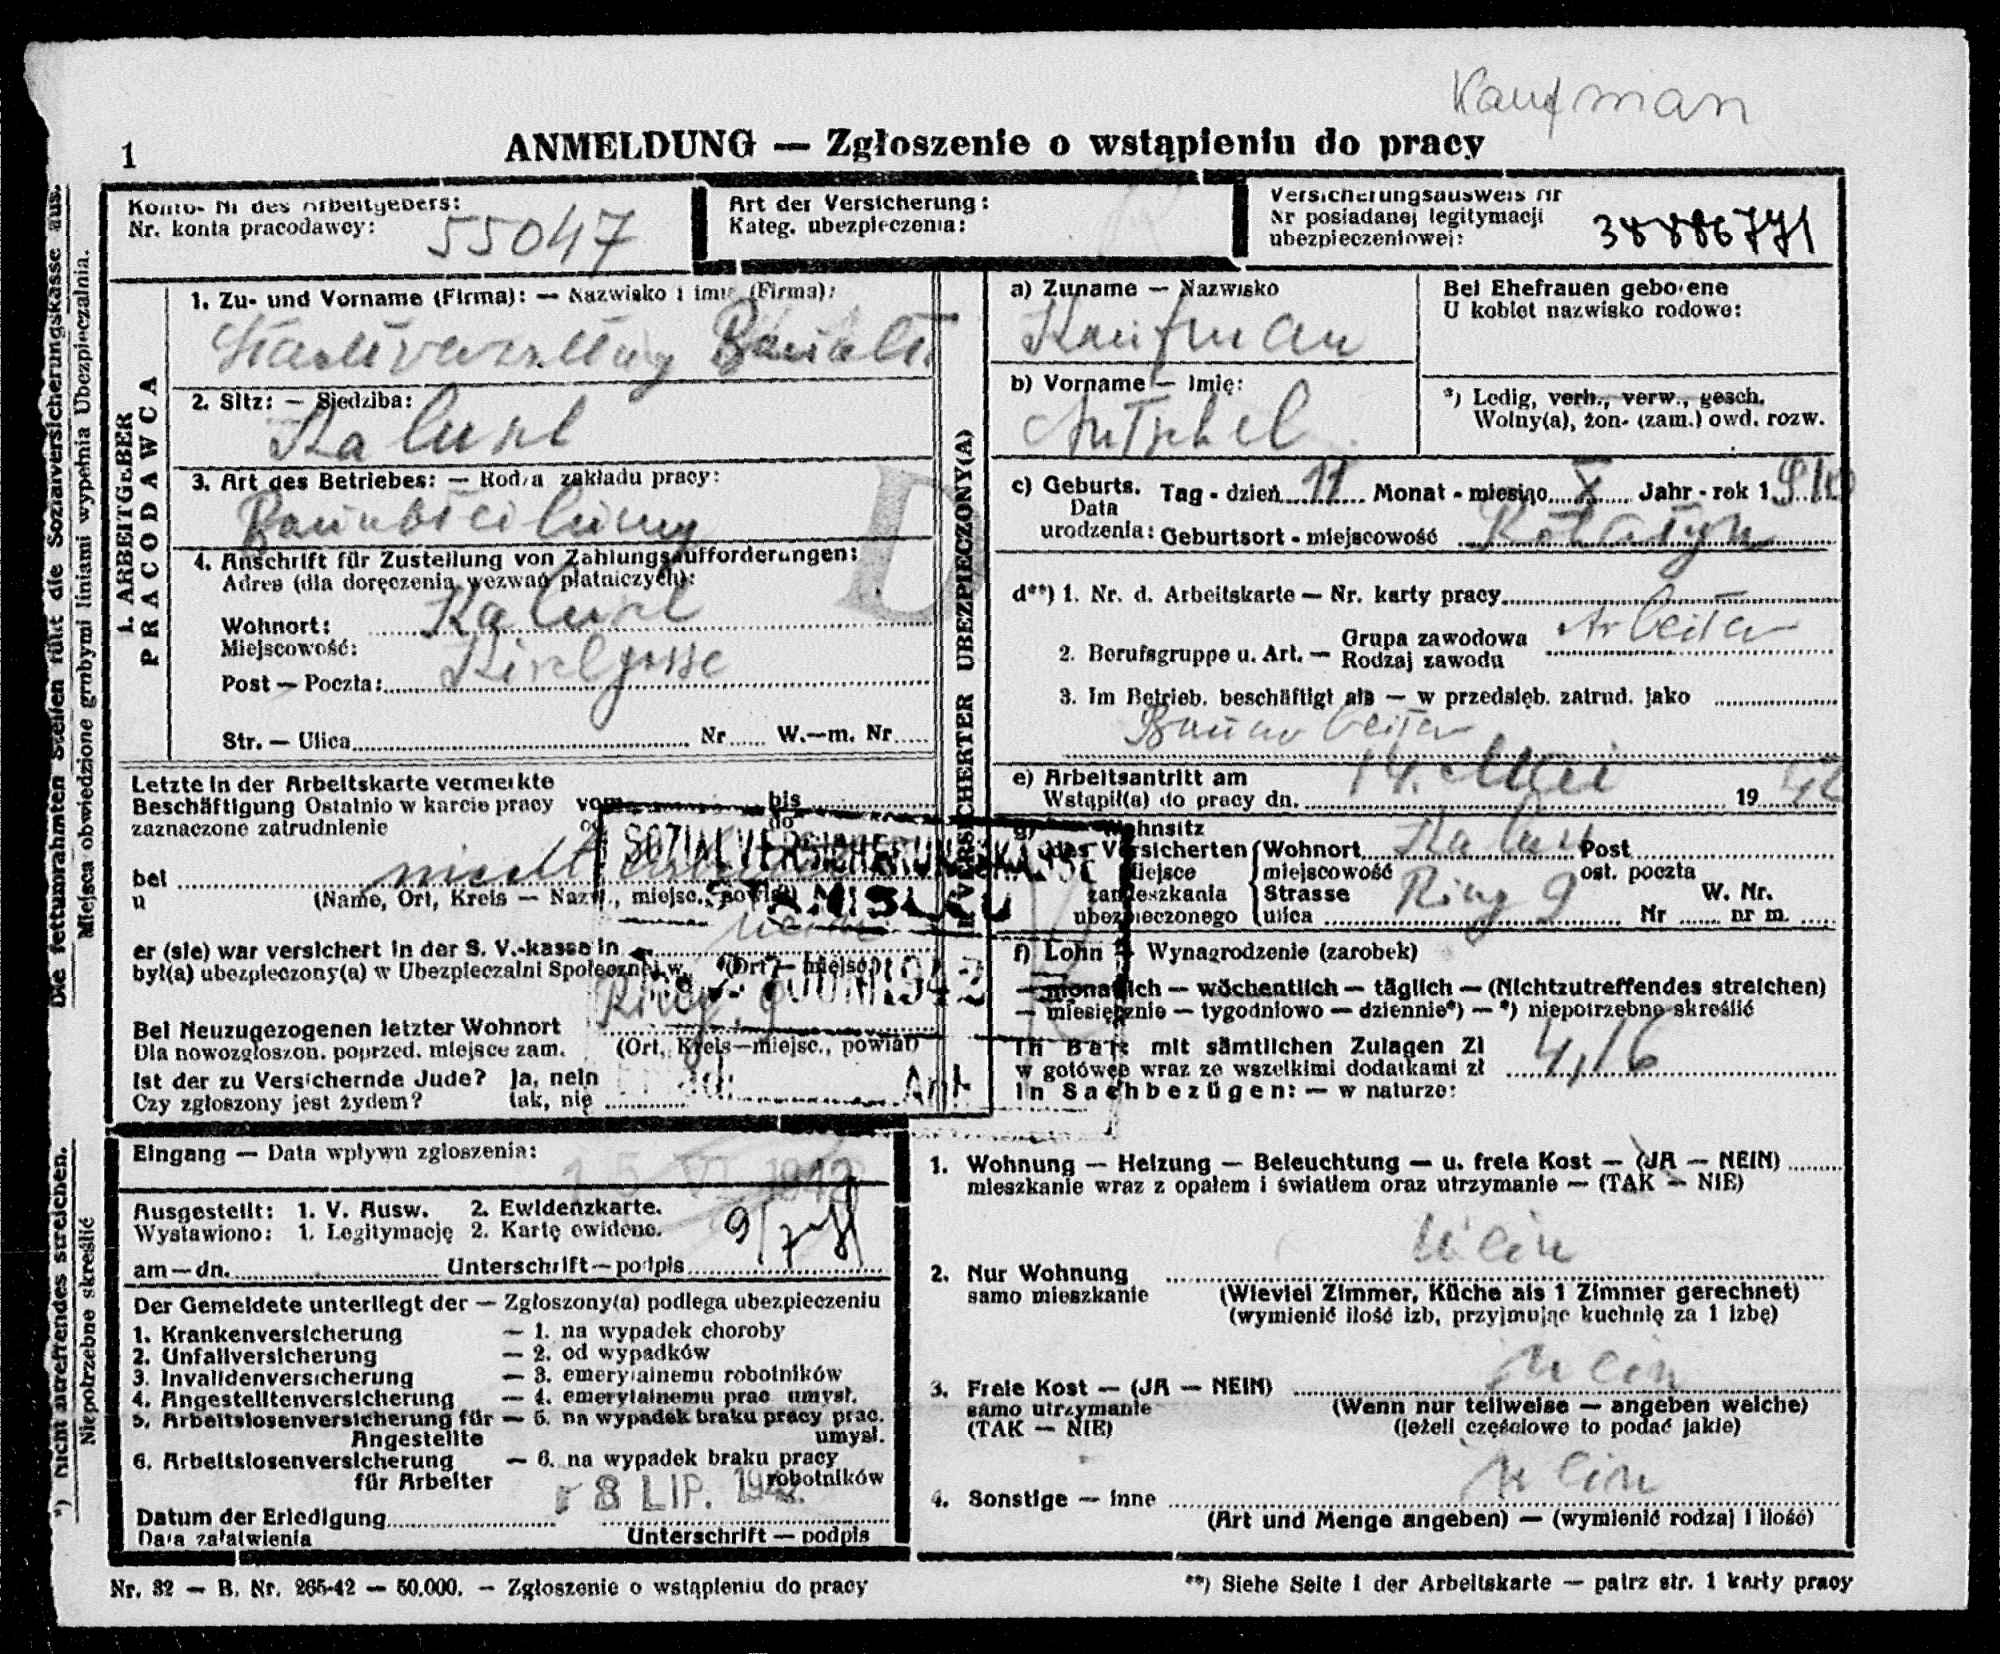 Kaufman
1
ANMELDUNG — Zgłoszenie o wstąpieniu do pracy
Konto- Nr des Arbeitgebers:
Nr. konta pracodawcy:
55047
Art der Versicherung:
Kateg. ubezpieczenia:
Versicherungsausweis Nr
Nr posiadanej legitymacji
ubezpieczeniowej:
38886771
Die fettumrahmten Stellen füllt die Sozialversicherungskasse aus.
Miejsca obwiedzione grubymi liniami wypełnia Ubezpieczalnia.
I. ARBEITGEBER
PRACODAWCA
1. Zu- und Vorname (Firma): — Nazwisko i imię (Firma):
2. Sitz: — Siedziba:
Kalusz
3. Art des Betriebes: — Rodzaj zakładu pracy:
Bauabteilung
4. Anschrift für Zustellung von Zahlungsaufforderungen:
Adres (dla doręczenia wezwań płatniczych):
Wohnort:
Miejscowość:
Kalusz
Post — Poczta:
Str. — Ulica Nr W.—m. Nr
Letzte in der Arbeitskarte vermerkte
Beschäftigung Ostatnio w karcie pracy vom bis
zaznaczone zatrudnienie do
bei
u
nicht
(Name, Ort, Kreis — Nazw., miejsc., powiat)
SOZIALVERSICHERUNGSKASSE
STANISLAU
er (sie) war versichert in der S. V.-kasse in
był(a) ubezpieczony(a) w Ubezpieczalni Społecznej w (Ort — miejsc.)
JUNI 1942
Bei Neuzugezogenen letzter Wohnort
Dla nowozgłoszon. poprzed. miejsce zam.
Ring 9
(Ort, Kreis—miejsc., powiat)
Ist der zu Versichernde Jude? Ja, nein
Czy zgłoszony jest żydem? tak, nie
II. VERSICHERTER UBEZPIECZONY(A)
a) Zuname — Nazwisko
Kaufman
Bei Ehefrauen geborene
U kobiet nazwisko rodowe:
b) Vorname — Imię:
Antschel
*) Ledig, verh., verw., gesch.
Wolny(a), żon- (zam.) owd. rozw.
c) Geburts. Tag - dzień 11 Monat - miesiąc X Jahr - rok 1910
Data
urodzenia: Geburtsort - miejscowość Rohatyn
d**) 1. Nr. d. Arbeitskarte — Nr. karty pracy
2. Berufsgruppe u. Art. — Grupa zawodowa
Rodzaj zawodu
Arbeiter
3. Im Betrieb. beschäftigt als — w przedsięb. zatrud. jako
Bauarbeiter
e) Arbeitsantritt am
Wstąpił(a) do pracy dn. 14. Mai 1942
g) Wohnsitz
des Versicherten Wohnort Kalusz Post
Miejsce miejscowość ost. poczta
zamieszkania Strasse Ring 9 W. Nr.
ubezpieczonego ulica Nr nr m.
f) Lohn — Wynagrodzenie (zarobek)
— monatlich — wöchentlich — täglich — (Nichtzutreffendes streichen)
— miesięcznie — tygodniowo — dziennie*) — *) niepotrzebne skreślić
In Bar: mit sämtlichen Zulagen Zl
w gotówce wraz ze wszelkimi dodatkami zł 4,16
In Sachbezügen: — w naturze:
1. Wohnung — Heizung — Beleuchtung — u. freie Kost — (JA — NEIN)
mieszkanie wraz z opałem i światłem oraz utrzymanie — (TAK — NIE)
nein
2. Nur Wohnung
samo mieszkanie
(Wieviel Zimmer, Küche als 1 Zimmer gerechnet)
(wymienić ilość izb, przyjmując kuchnię za 1 izbę)
nein
3. Freie Kost — (JA — NEIN)
samo utrzymanie
(TAK — NIE)
(Wenn nur teilweise — angeben welche)
(jeżeli częściowe to podać jakie)
nein
4. Sonstige — inne
(Art und Menge angeben) — (wymienić rodzaj i ilość)
*) Nichtzutreffendes streichen.
Niepotrzebne skreślić
Eingang — Data wpływu zgłoszenia:
15 VI 1942
Ausgestellt: 1. V. Ausw. 2. Ewidenzkarte.
Wystawiono: 1. Legitymację 2. Kartę ewidenc.
am—dn. Unterschrift—podpis
Der Gemeldete unterliegt der — Zgłoszony(a) podlega ubezpieczeniu
1. Krankenversicherung — 1. na wypadek choroby
2. Unfallversicherung — 2. od wypadków
3. Invalidenversicherung — 3. emerytalnemu robotników
4. Angestelltenversicherung — 4. emerytalnemu prac umysł.
5. Arbeitslosenversicherung für — 5. na wypadek braku pracy prac.
Angestellte umysł.
6. Arbeitslosenversicherung — 6. na wypadek braku pracy
für Arbeiter robotników
8 LIP. 1942
Datum der Erledigung
Data załatwienia Unterschrift — podpis
Nr. 32 — B. Nr. 265-42 — 50.000. — Zgłoszenie o wstąpieniu do pracy
**) Siehe Seite 1 der Arbeitskarte — patrz str. 1 karty pracy